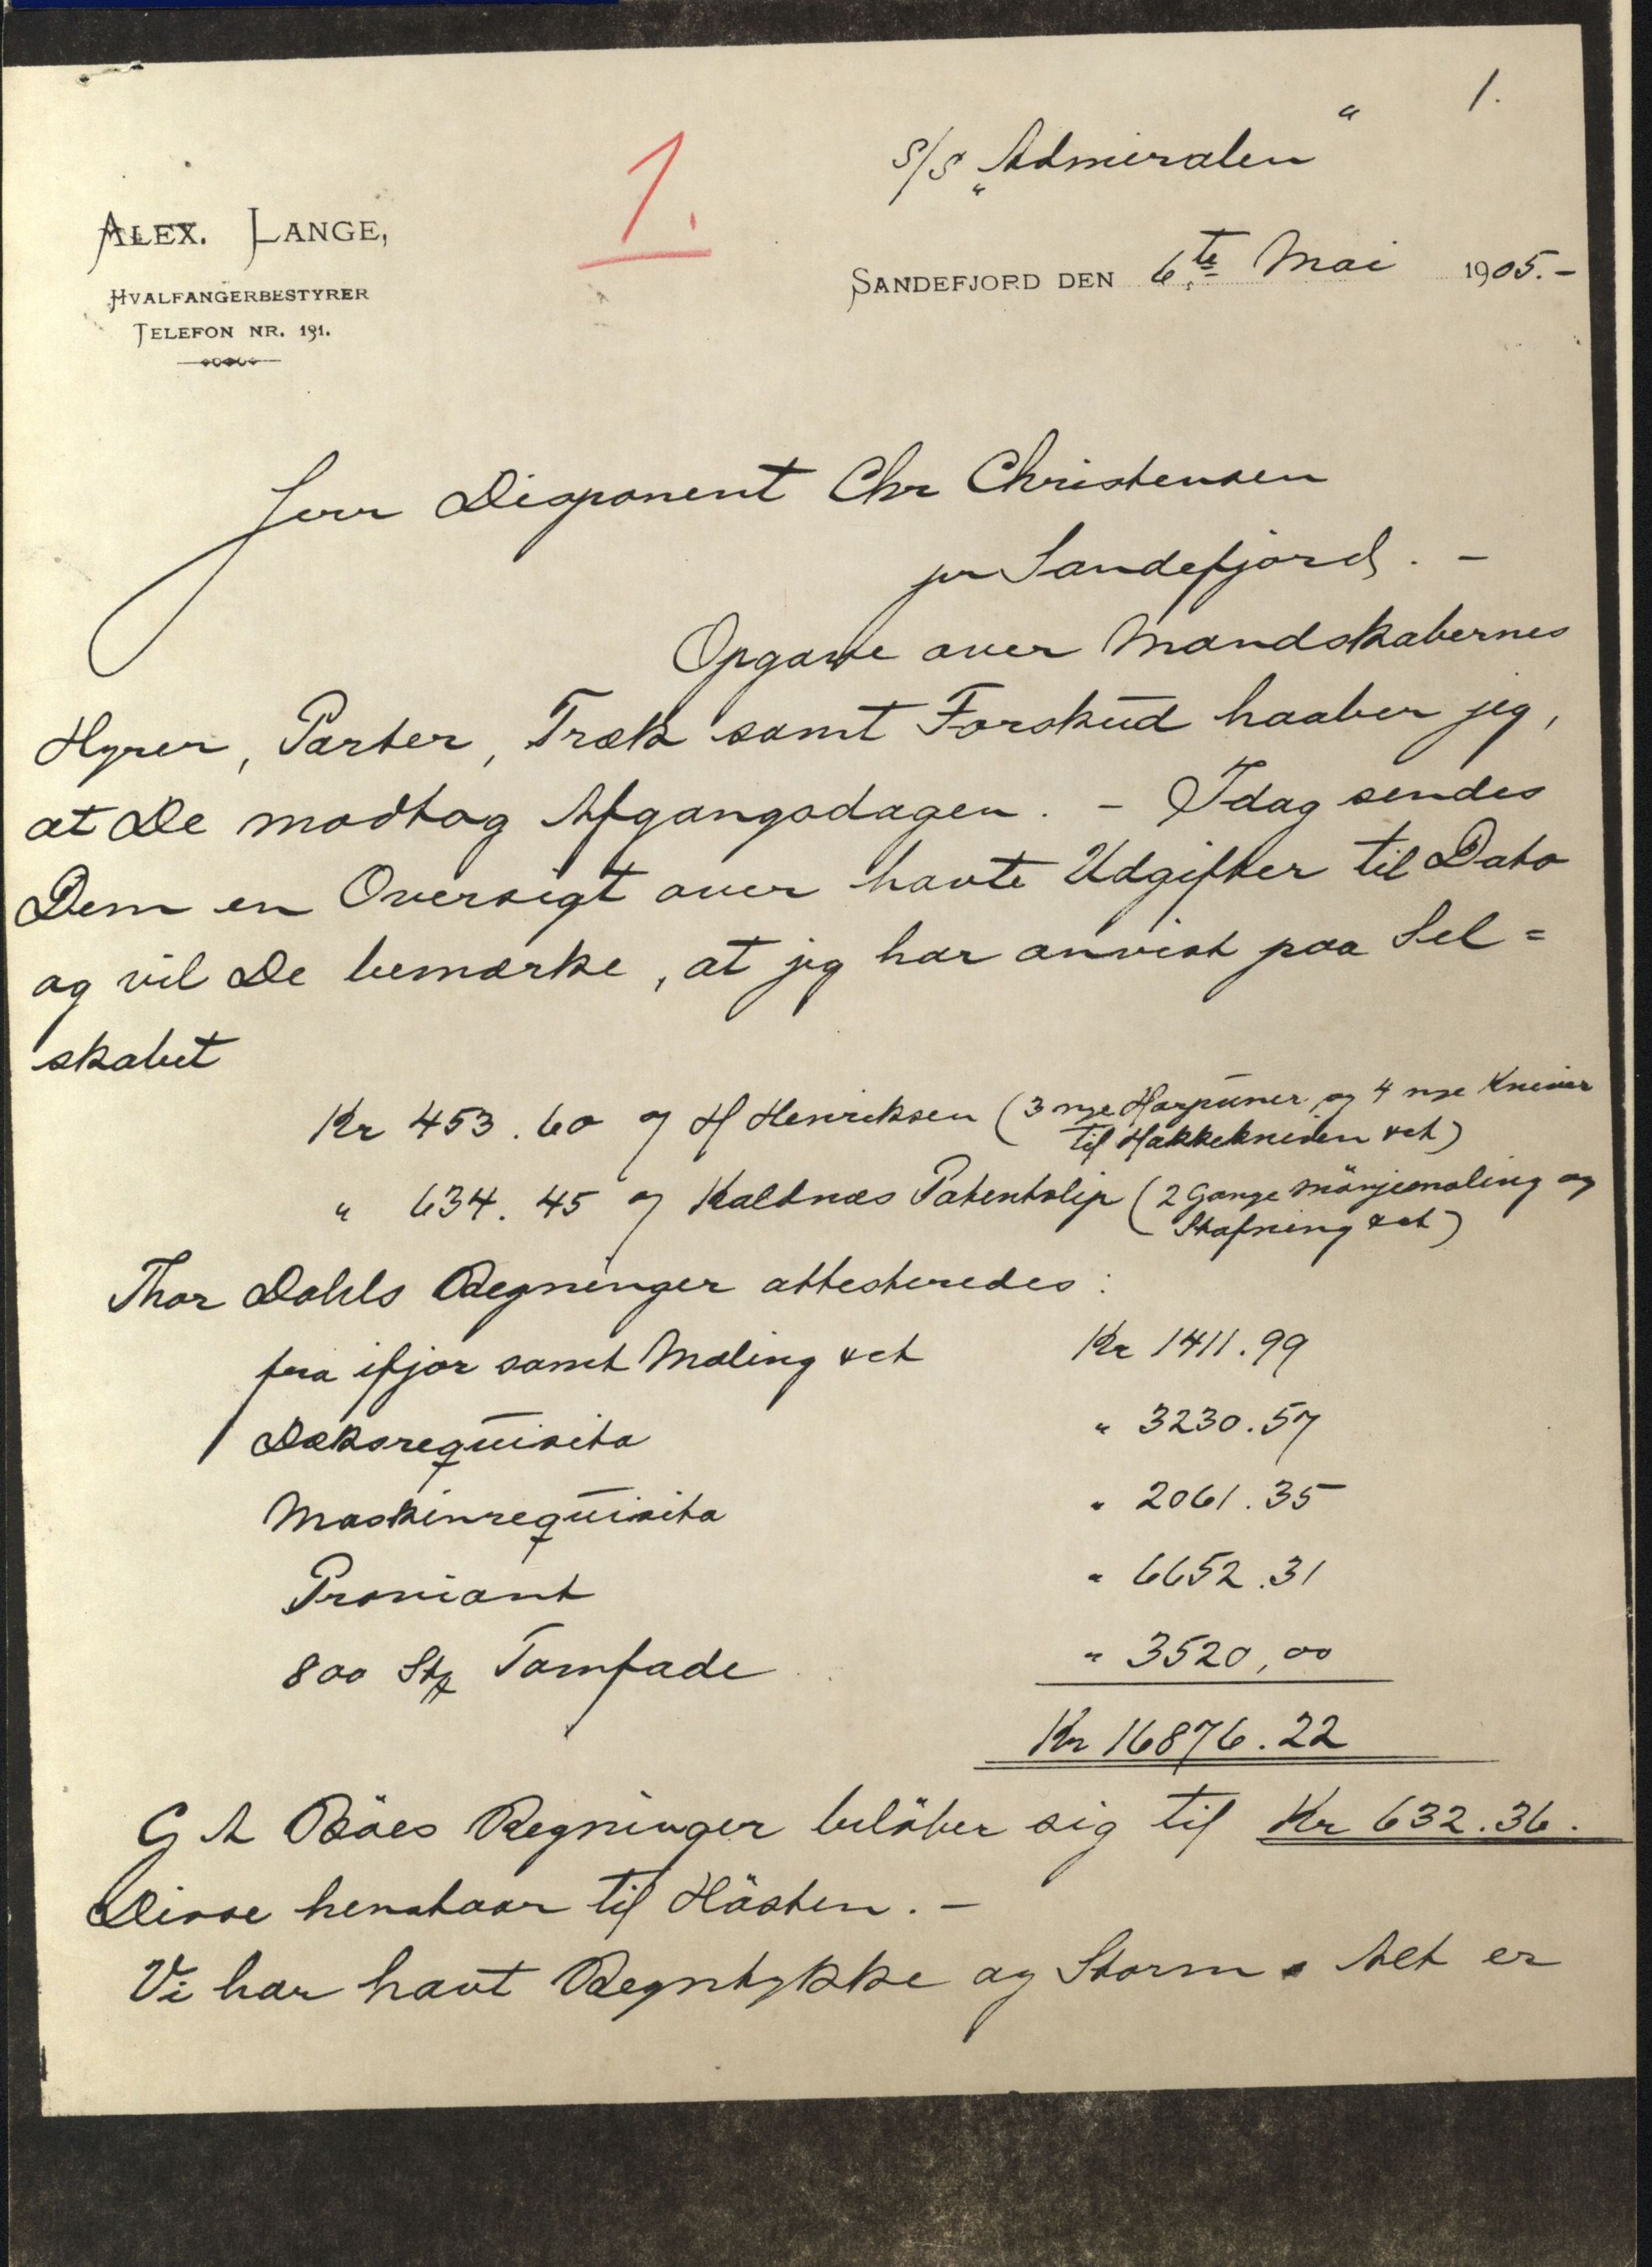 1.
S/S „Admiralen“
1.
ALEX. LANGE,
HVALFANGERBESTYRER
TELEFON NR. 191.
SANDEFJORD DEN 6te Mai 1905.-
Herr Disponent Chr Christensen
pr Sandefjord. -
Opgave over Mandskabernes
Hyrer, Parter, Træk samt Forskud haaber jeg,
at De modtog Afgangsdagen. - Idag sendes
Dem en Oversigt over havte Udgifter til Dato
og vil De bemærke, at jeg har anvist paa Sel=
skabet
Kr 453.60 af H Henriksen (3 nye Harpuner og 4 nye Kniver
til Hakkekniven &ct)
" 634.45 af Kaldnæs Patentslip (2 Gange Mönjemaling og
Skafning &ct)
Thor Dahls Regninger attesteredes:
fra ifjor samt Maling &ct Kr 1411.99
Dæksrequisita " 3230.57
Maskinrequisita " 2061.35
Proviant " 6652.31
800 Stk Tomfade " 3520,00
Kr 16876.22
G A Böes Regninger belöber sig til Kr 632.36.
Disse henstaar til Hösten. -
Vi har havt Regntykke og Storm. Alt er